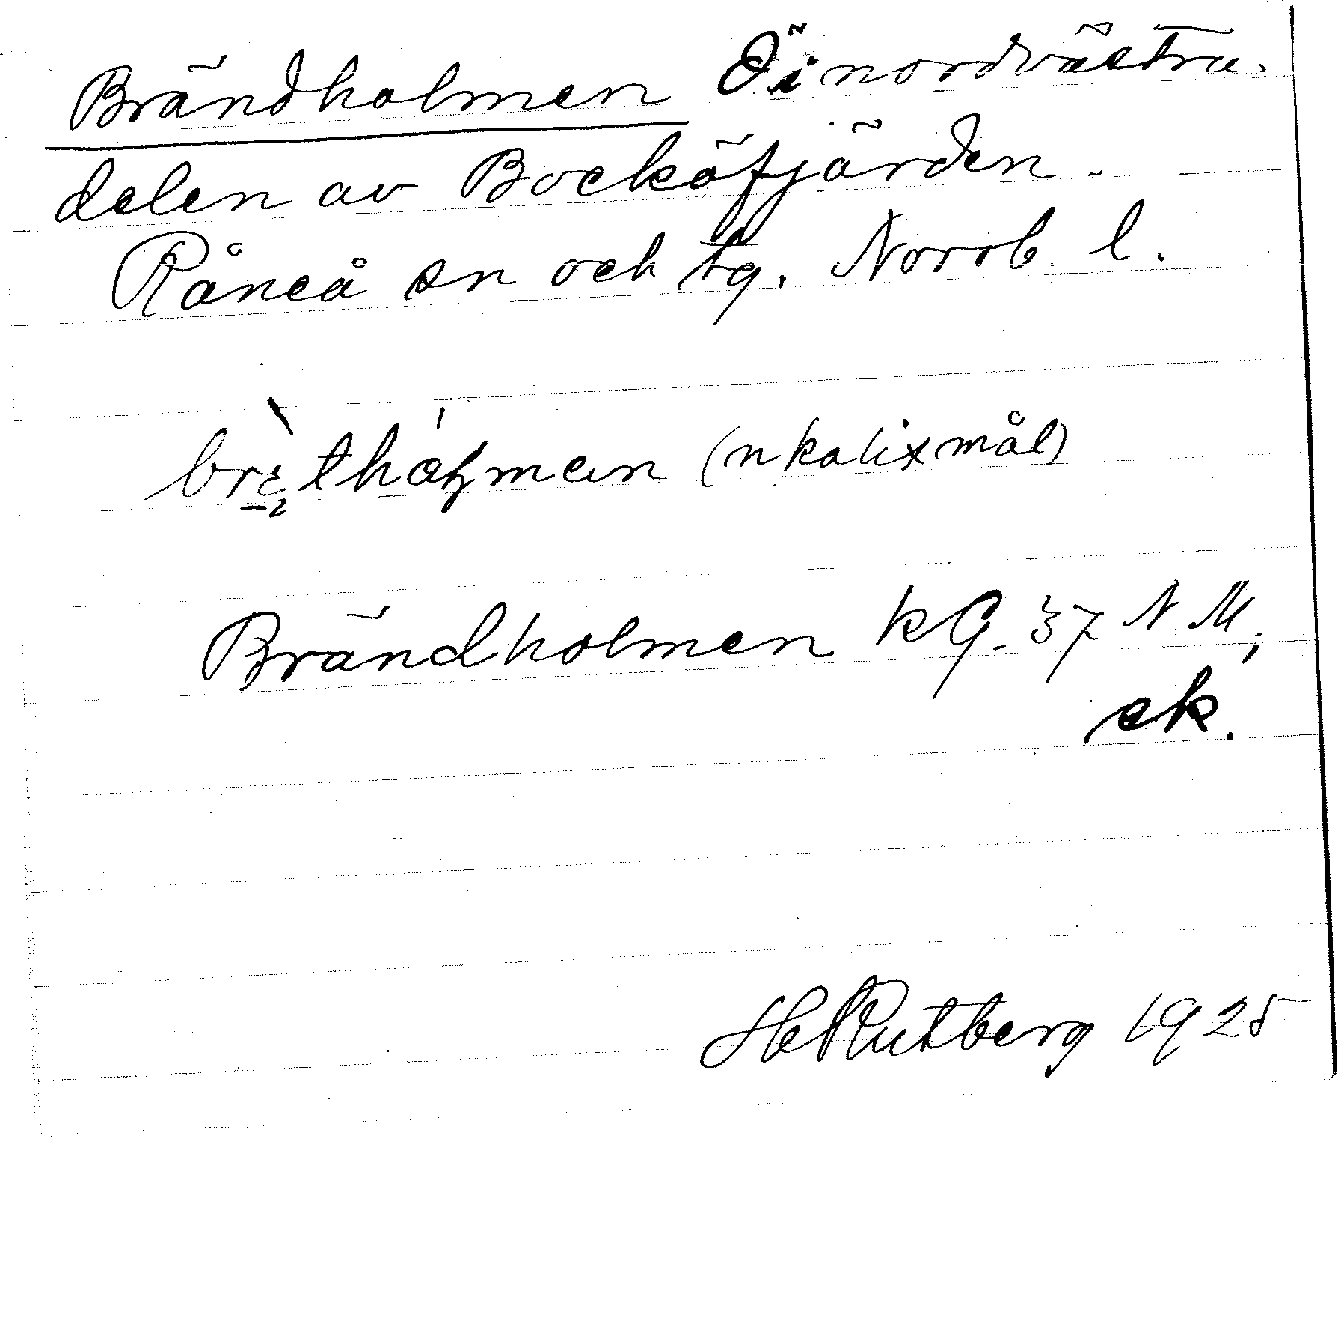 Brändholmen Ö i nordvästra
delen av Bocköfjärden.
Råneå sn och tg. Norrb l.
(nkalixmål)
Brändholmen kG. 37 N M;
ek.
H Rutberg 1925